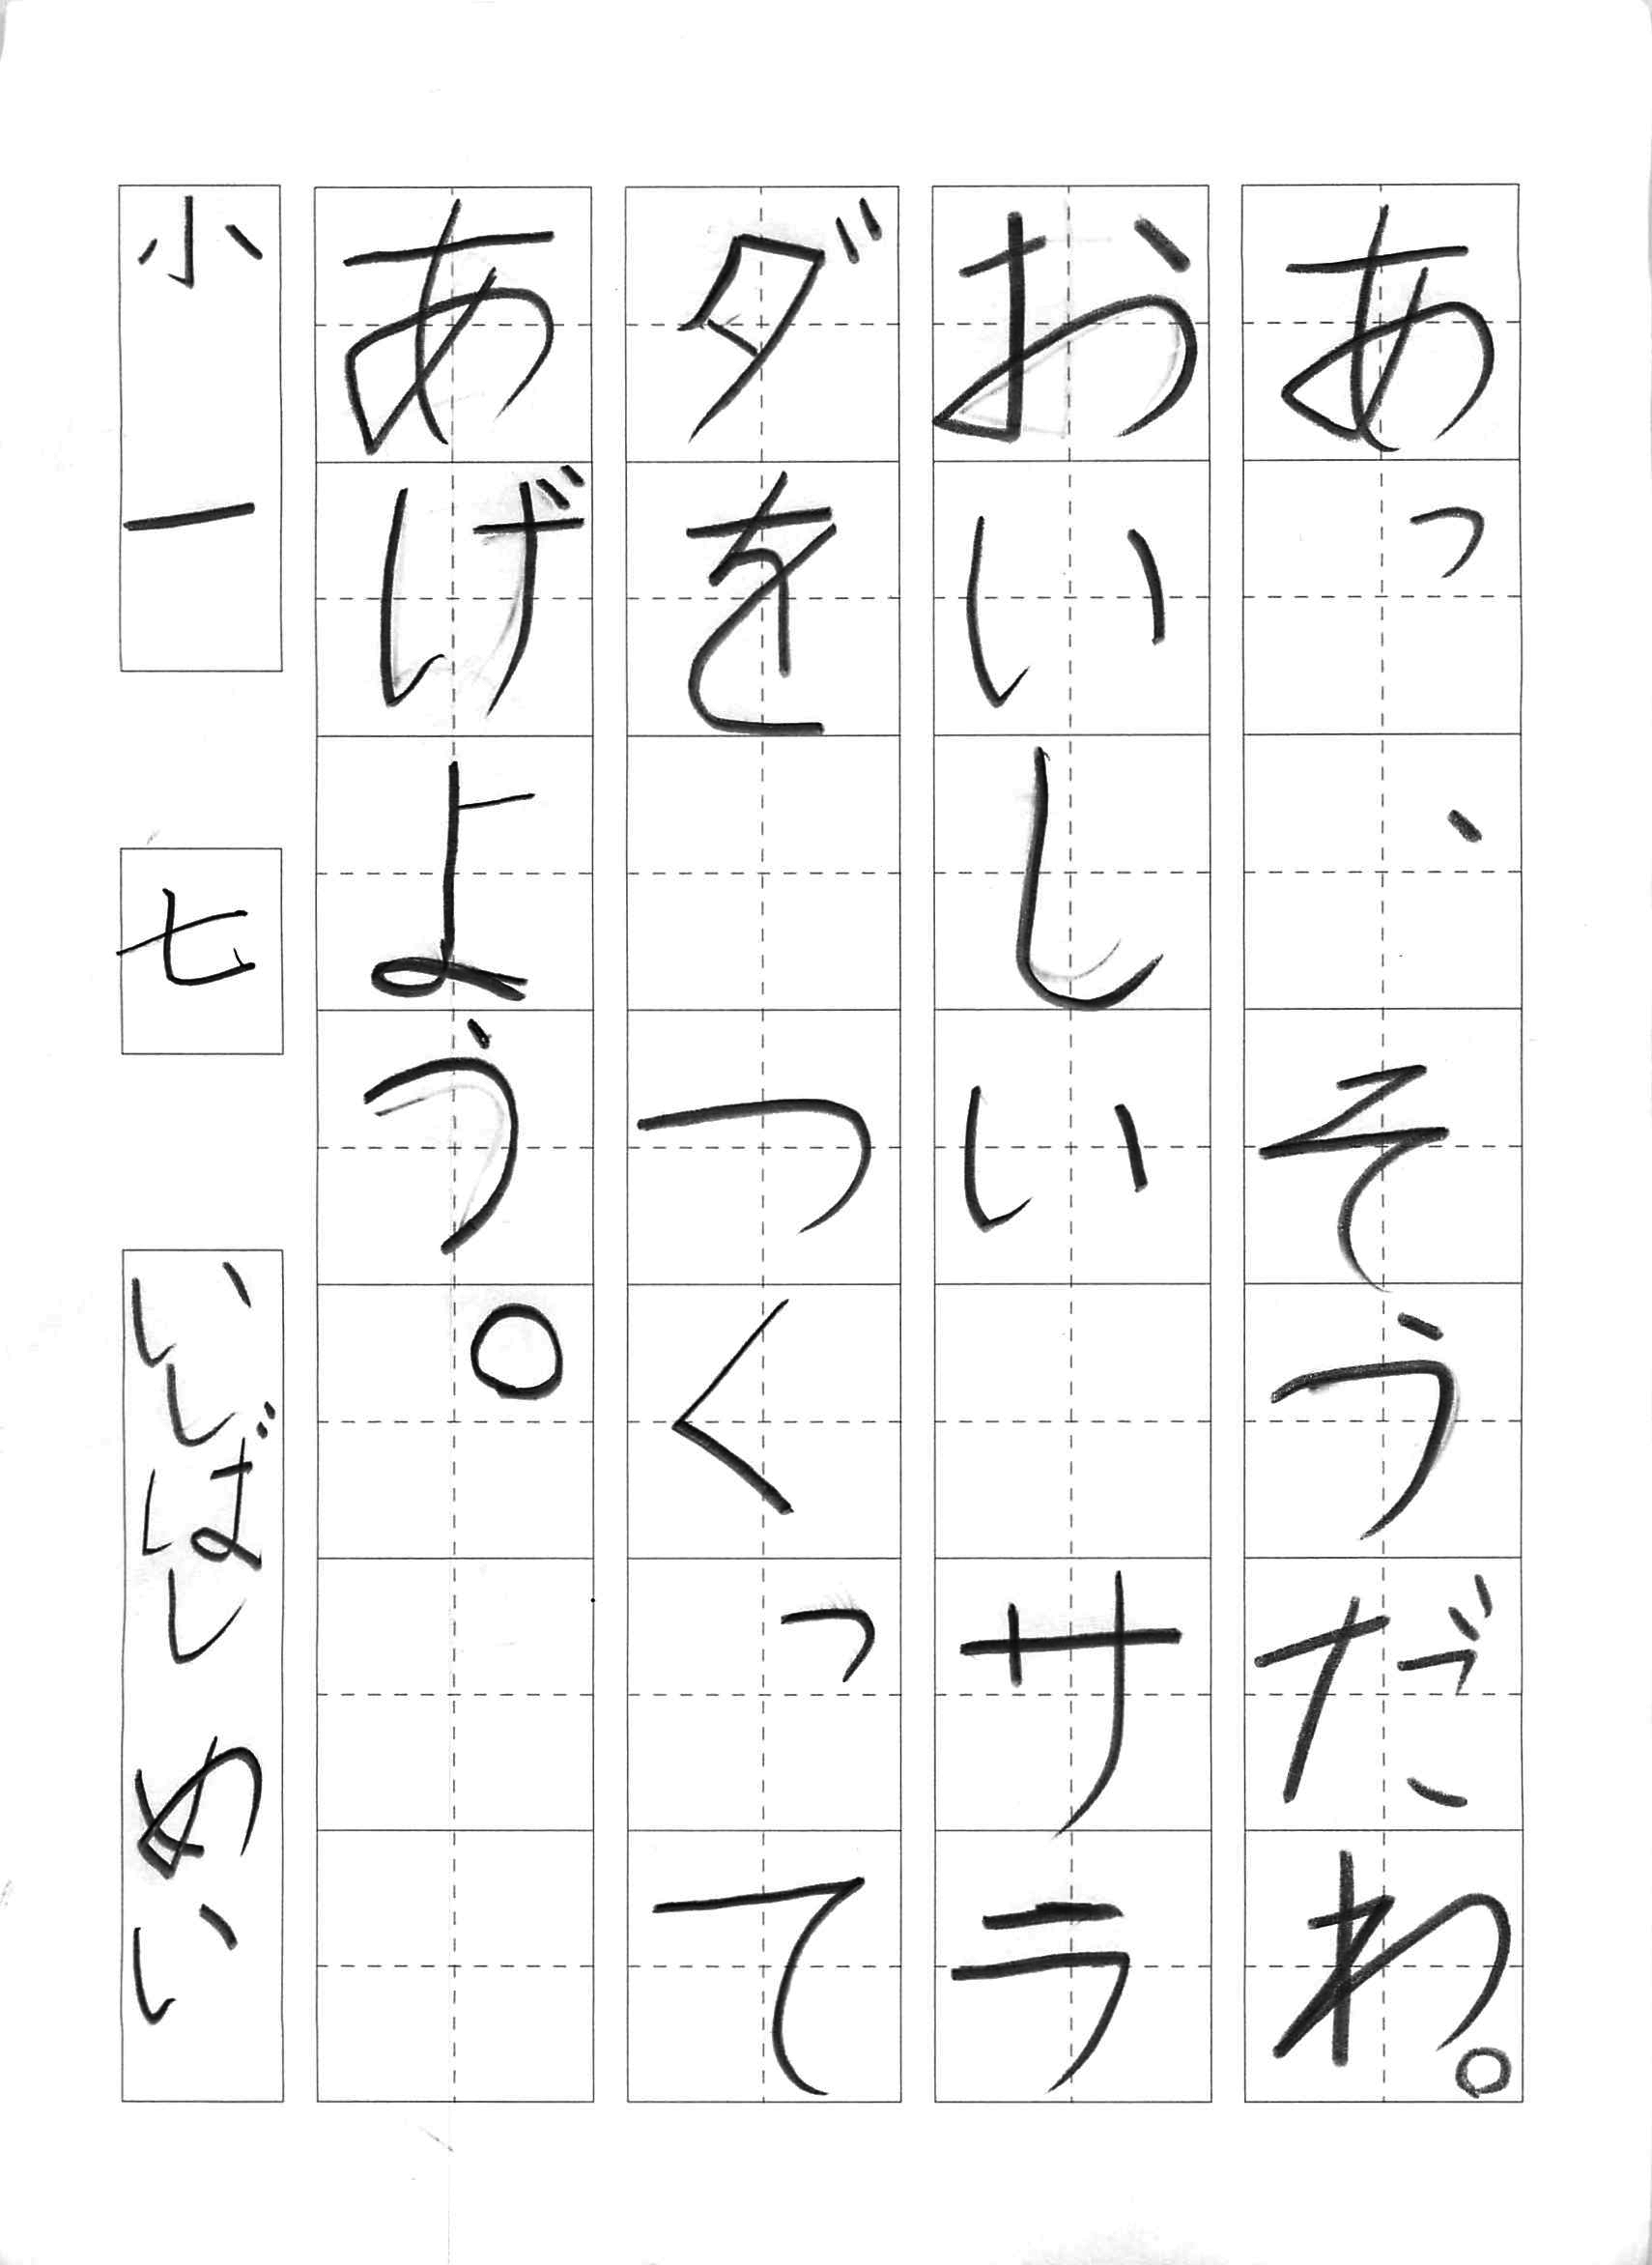 あっ、そうだわ。
おいしい サラ
ダを つくって
あげよう。
小一 七 いしばし めい